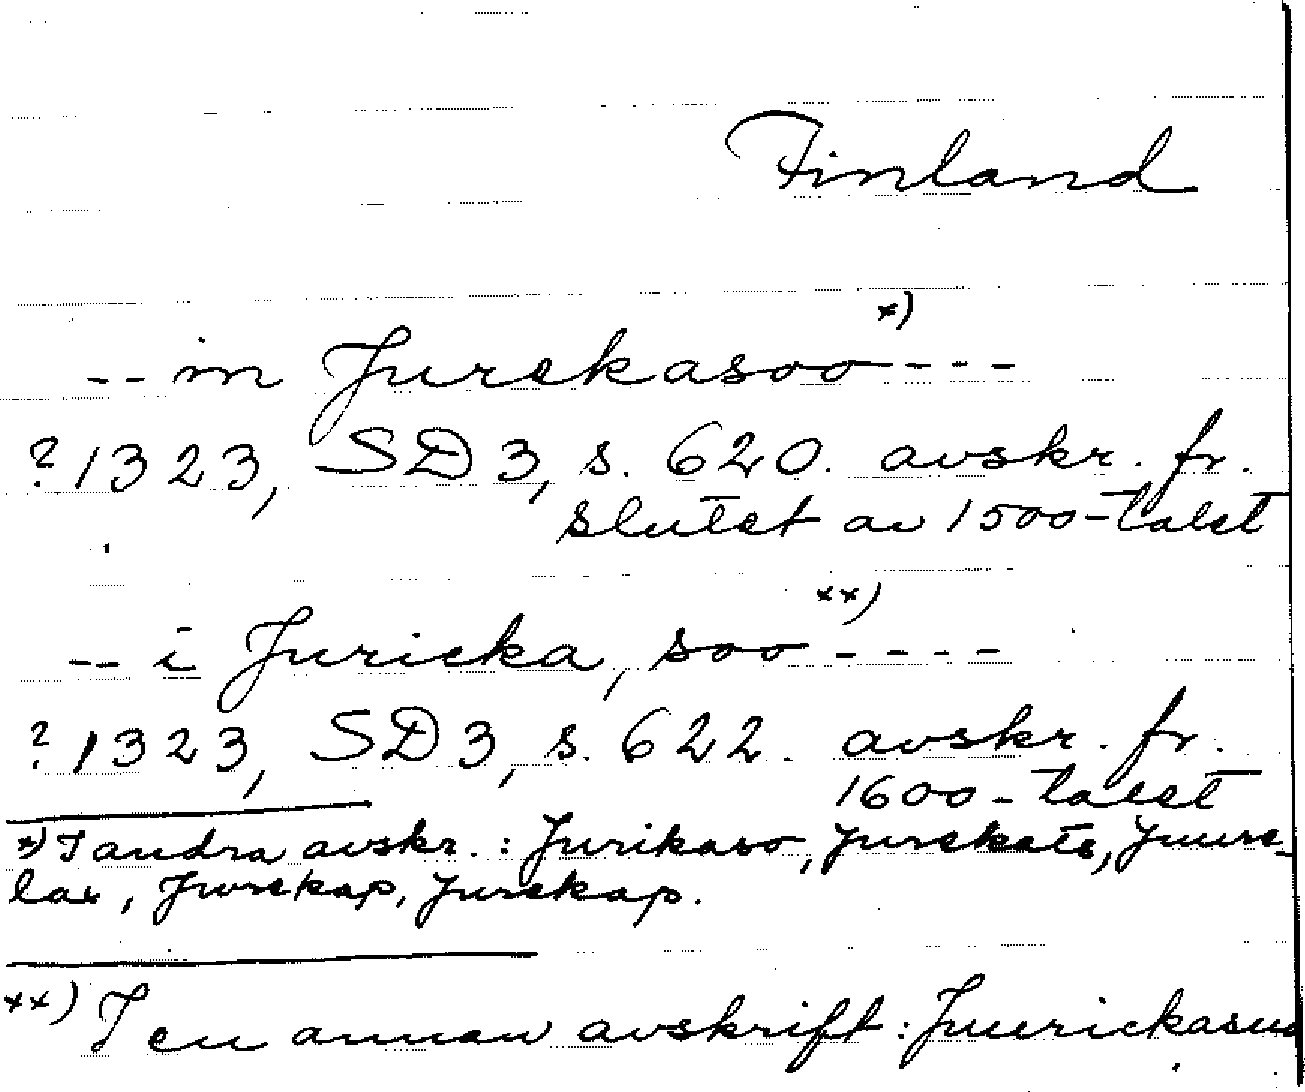 Finland
-- in Jurekasoo *) ---
? 1323, SD 3, s. 620. avskr. fr.
slutet av 1500-talet
-- i Juricka, soo **) ----
? 1323, SD 3, s. 622. avskr. fr.
1600-talet
*) I andra avskr.: Jurikaso, Jurekats, Juure-
lax, Jurekap, Jurekap.
**) I en annan avskrift: Juurickasuu